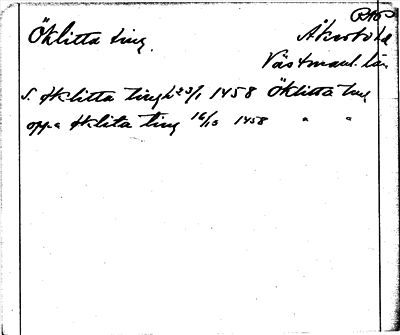 RAP
Öklitta ting. Åkerbo hd
Västmanl. län
S. Öklitta ting 23/1 1458 Öklitta ting
oppa Öklita ting 16/10 1458 " "